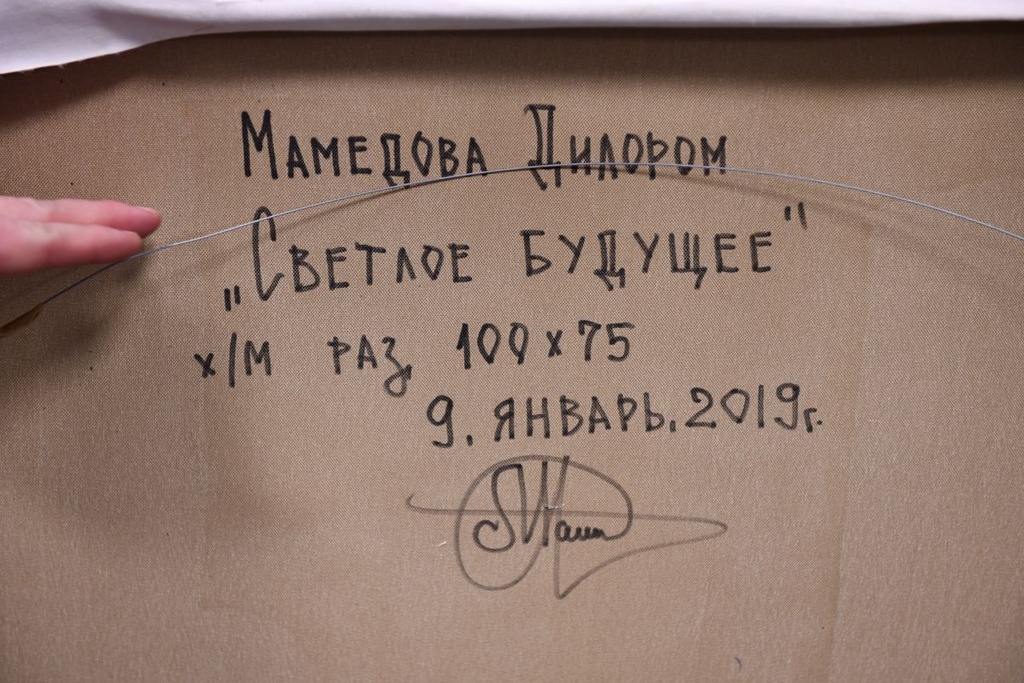 Мамедова Дилором
„Светлое будущее"
х/м раз, 100 х 75
9. январь. 2019г.